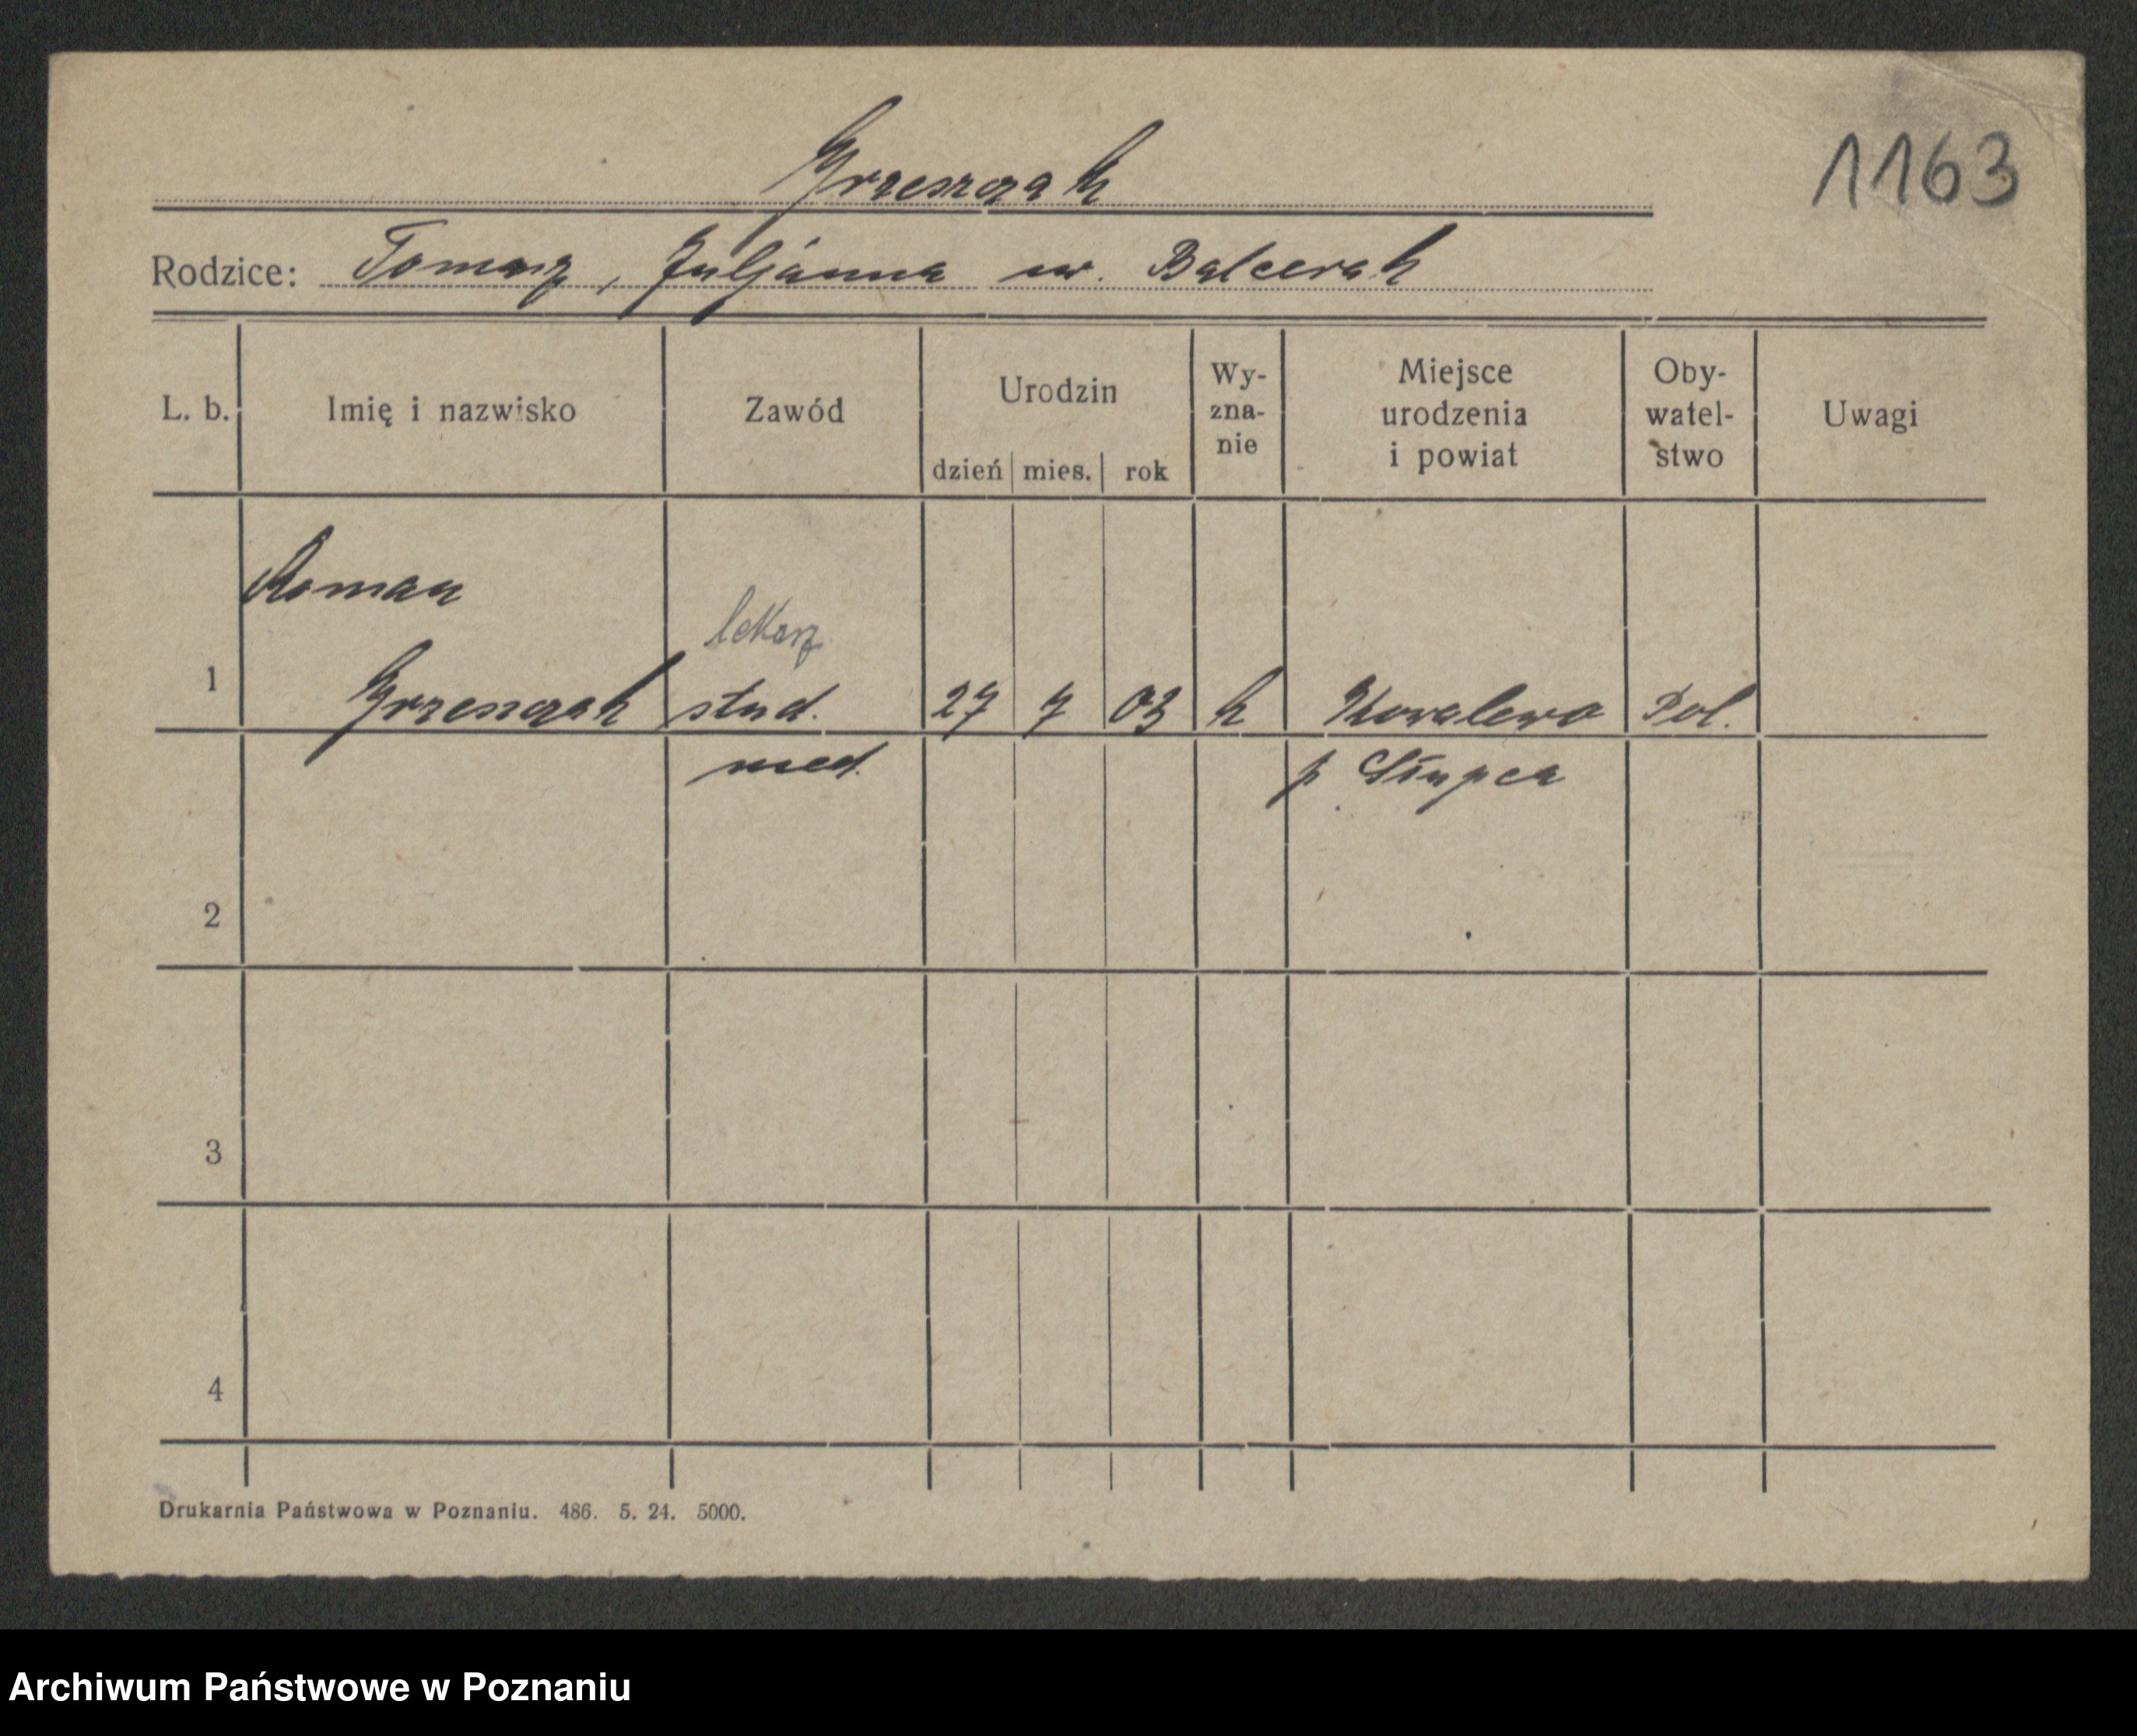 Grzeszczak
1163
Rodzice: Tomasz, Juljanna ur. Balcerak
L. b. Imię i nazwisko Zawód Urodzin dzień mies. rok Wy-zna-nie Miejsce urodzenia i powiat Oby-watel-stwo Uwagi
Roman
lekarz
1 Grzeszczak stud. 27 7 03 k Kowalewo Pol.
med. p Słupca
2
3
4
Drukarnia Państwowa w Poznaniu. 486. 5. 24. 5000.
Archiwum Państwowe w Poznaniu